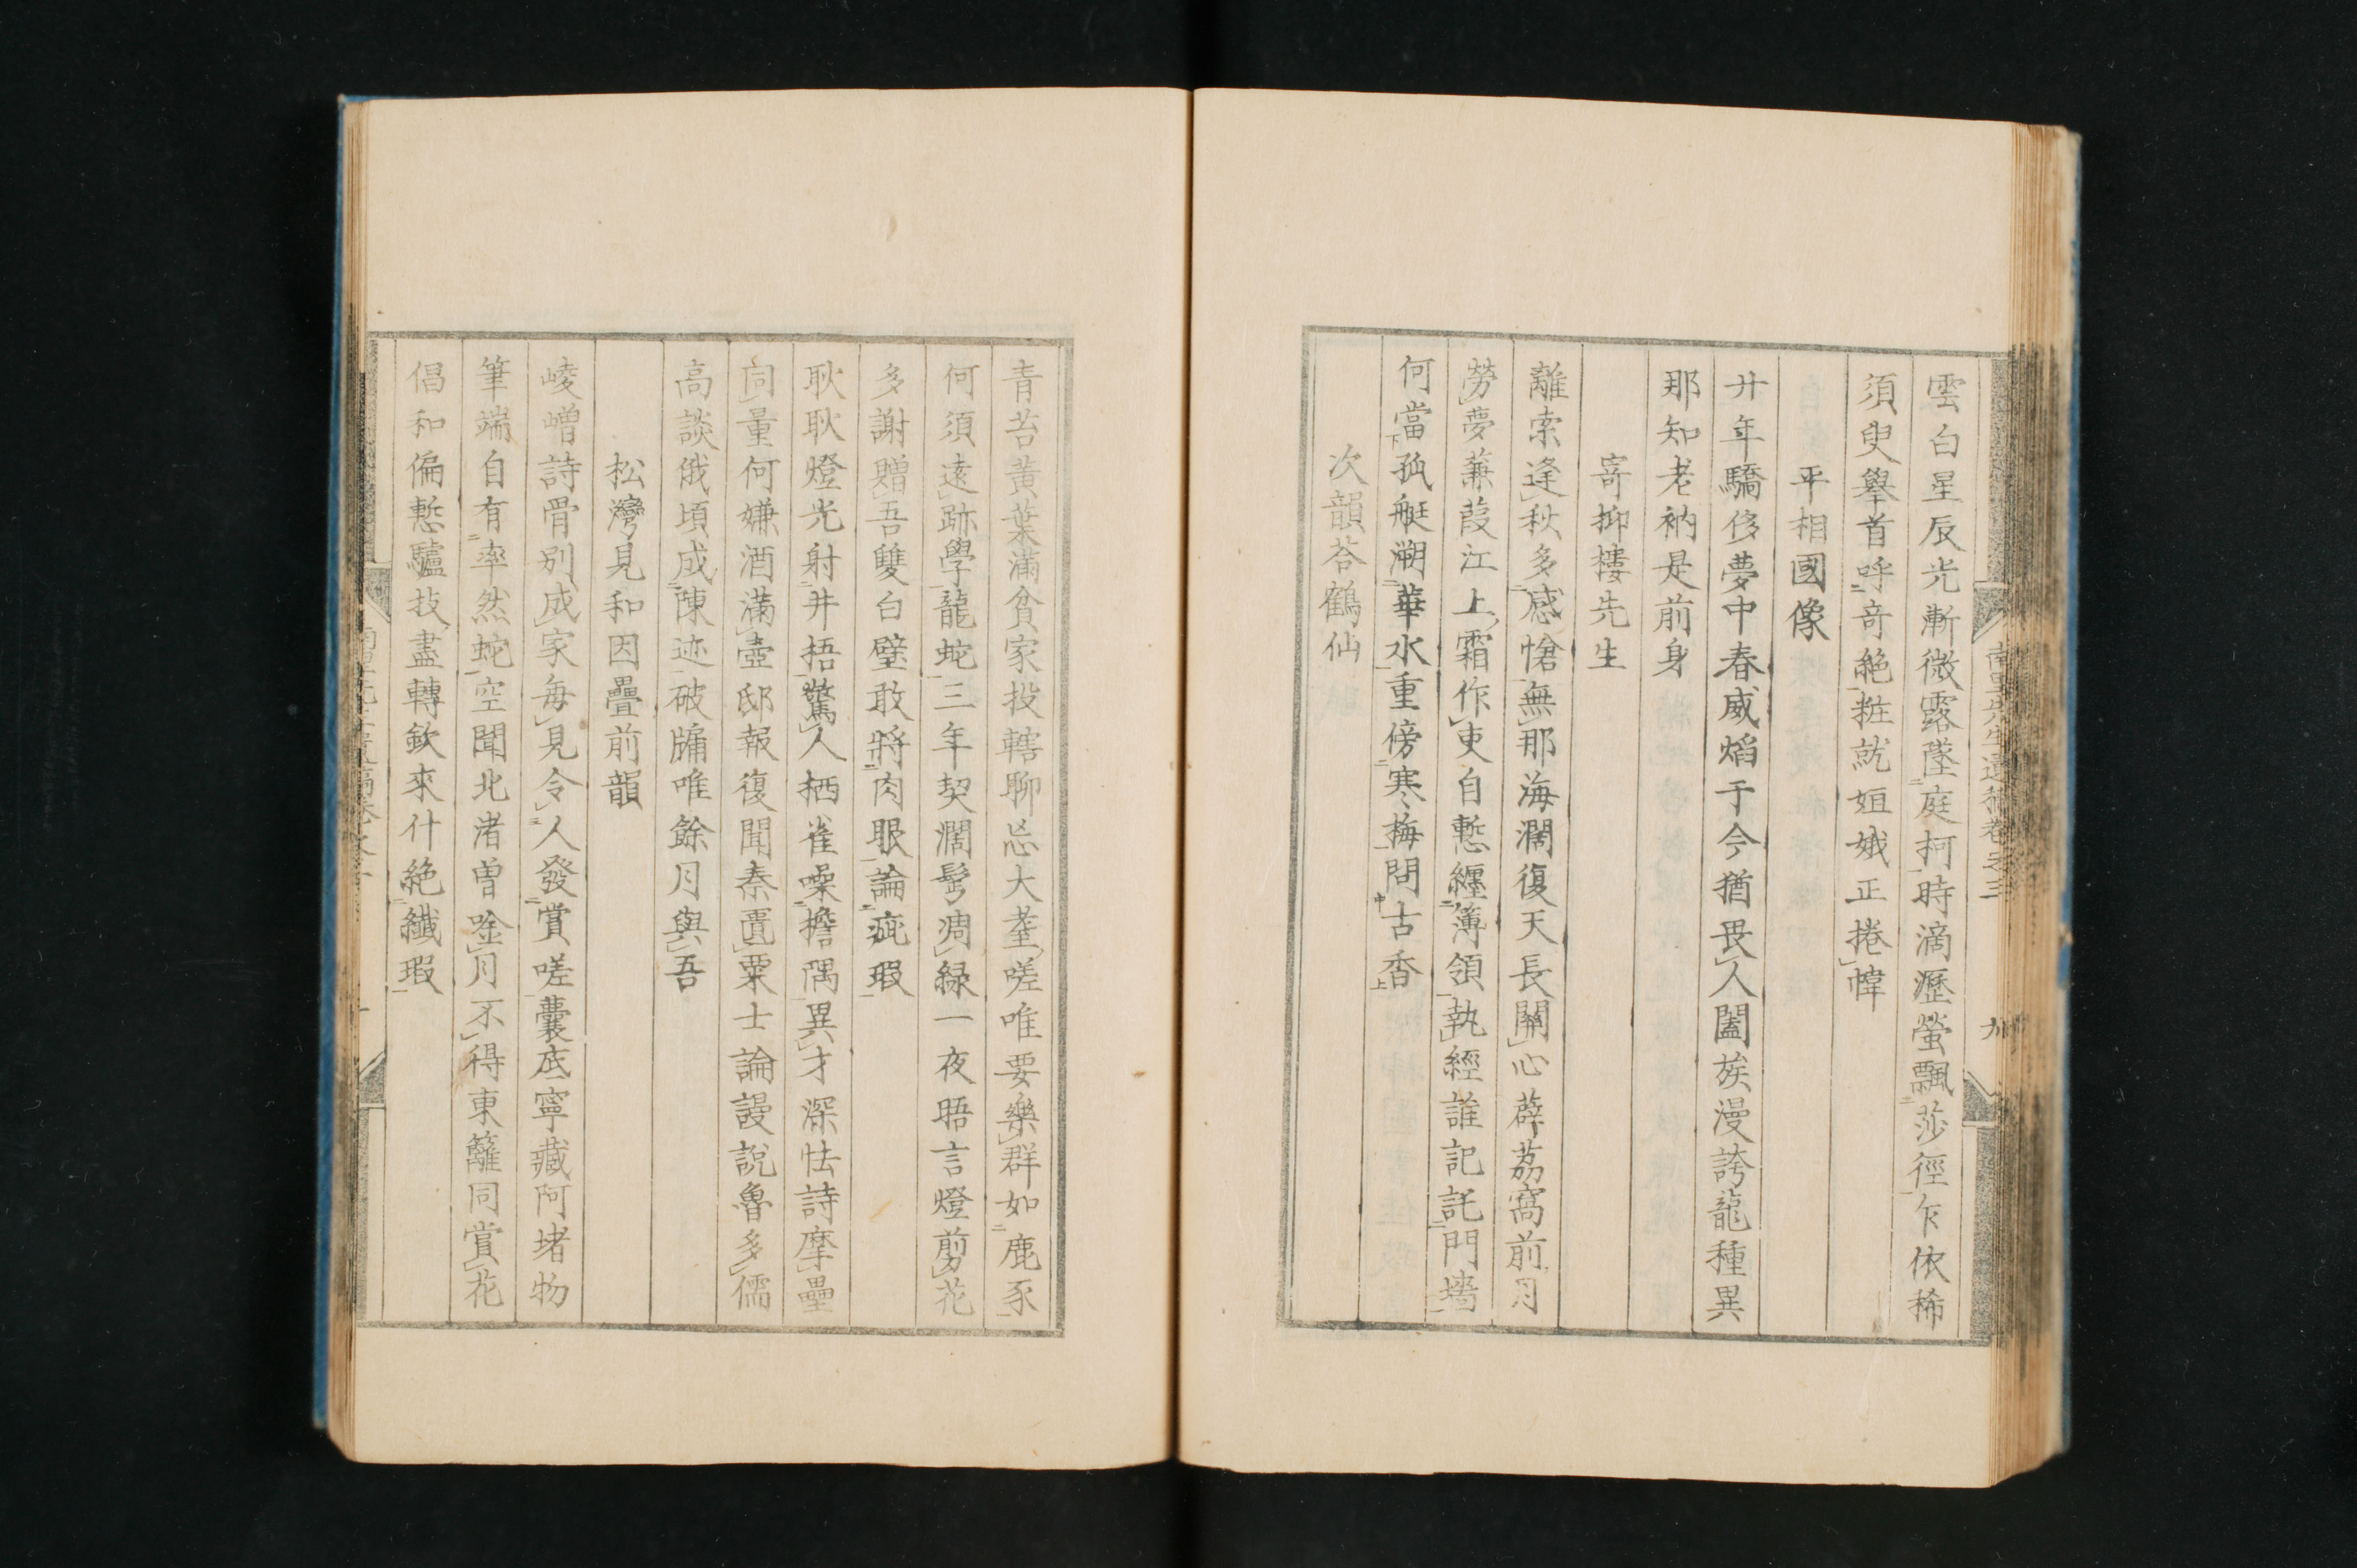 南里先生遺稿卷之三
九
雲白星辰光漸微露墜庭柯時滴瀝螢飄莎徑乍依稀
須臾擧首呼奇絶粧就姮娥正捲幃
平相國像
廾年驕侈夢中春威焰于今猶畏人闔族漫誇龍種異
那知老衲是前身
寄抑樓先生
離索逢秋多感愴無那海濶復天長關心薜茘窩前月
勞夢蒹葭江上霜作吏自慙纏簿領執經誰記託門墻
何當孤艇溯華水重傍寒梅問古香
次韻荅鶴仙
青苔黃葉滿貧家投轄聊忘大耋嗟唯要樂群如鹿豕
何須遠跡學龍蛇三年契濶髩凋緑一夜晤言燈剪花
多謝贈吾雙白璧敢將肉眼論疵瑕
耿耿燈光射井梧驚人栖雀噪擔隅異才深怯詩摩壘
同量何嫌酒滿壺邸報復聞秦匱粟士論謾說魯多儒
高談俄頃成陳迹破牖唯餘月與吾
松灣見和因疊前韻
崚嶒詩骨別成家每見令人發賞嗟囊底寧藏阿堵物
筆端自有率然蛇空聞北渚曽唫月不得東籬同賞花
倡和偏慙驢技盡轉欽來什絶纖瑕